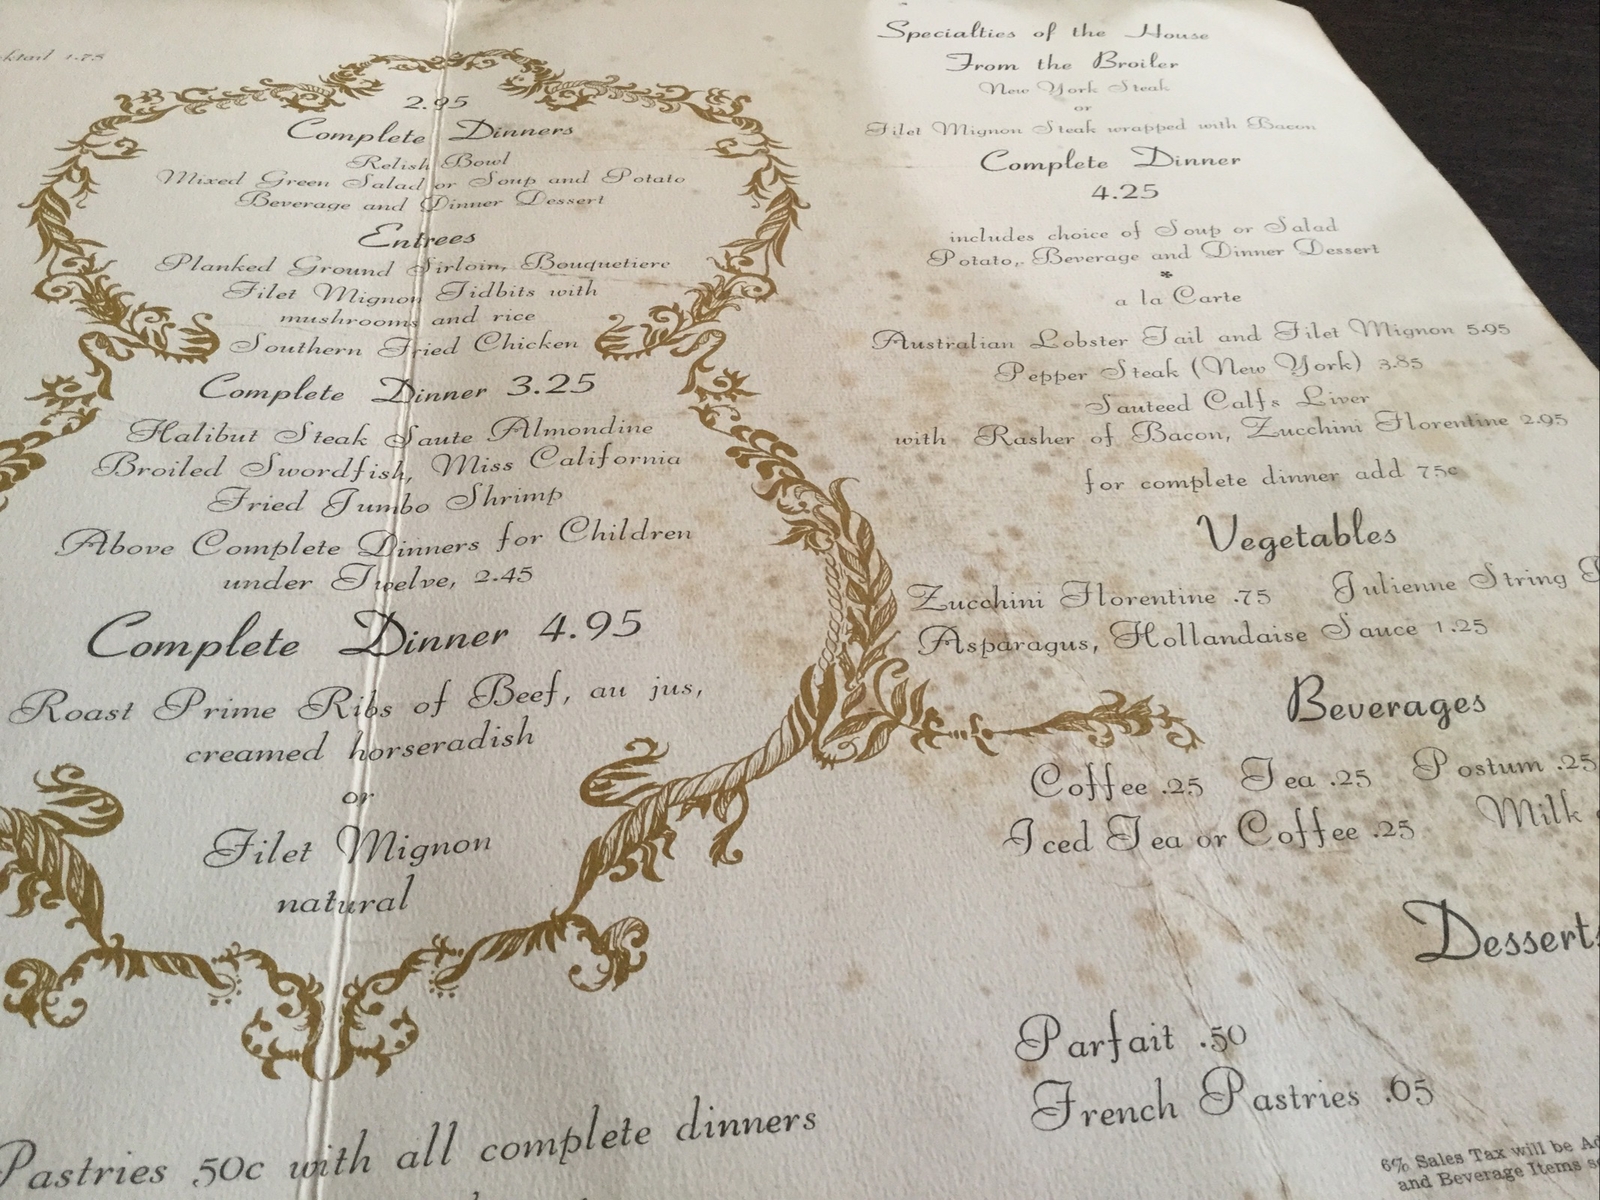 1.75
2.95
Complete Dinners
Relish Bowl
Mixed Green Salad or Soup and Potato
Beverage and Dinner Dessert
Entrees
Planked Ground Sirloin, Bouquetiere
Filet Mignon Tidbits with
mushrooms and rice
Southern Fried Chicken
Complete Dinner 3.25
Halibut Steak Saute Almondine
Broiled Swordfish, Miss California
Fried Jumbo Shrimp
Above Complete Dinners for Children
under Twelve, 2.45
Complete Dinner 4.95
Roast Prime Ribs of Beef, au jus,
creamed horseradish
or
Filet Mignon
natural
Pastries 50c with all complete dinners
Specialties of the House
From the Broiler
New York Steak
or
Filet Mignon Steak wrapped with Bacon
Complete Dinner
4.25
includes choice of Soup or Salad
Potato, Beverage and Dinner Dessert
*
a la Carte
Australian Lobster Tail and Filet Mignon 5.95
Pepper Steak (New York) 3.85
Sauteed Calfs Liver
with Rasher of Bacon, Zucchini Florentine 2.95
for complete dinner add 75c
Vegetables
Zucchini Florentine .75 Julienne String
Asparagus, Hollandaise Sauce 1.25
Beverages
Coffee .25 Tea .25 Postum .25
Iced Tea or Coffee .25 Milk
Desserts
Parfait .50
French Pastries .65
6% Sales Tax will be
and Beverage Items